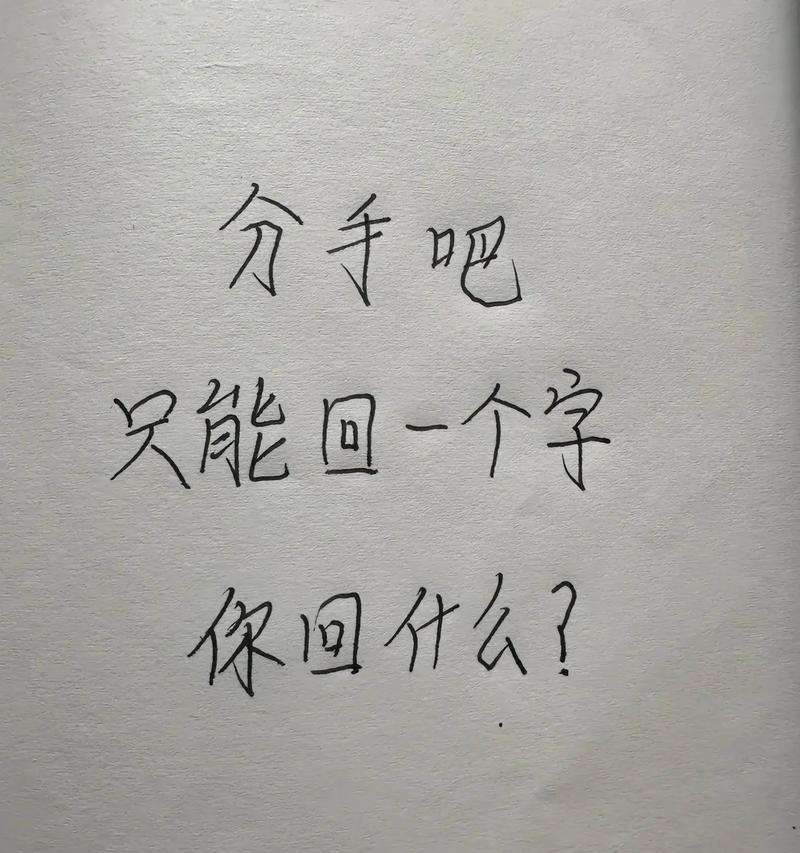 分手吧
只能回一个字
你回什么?